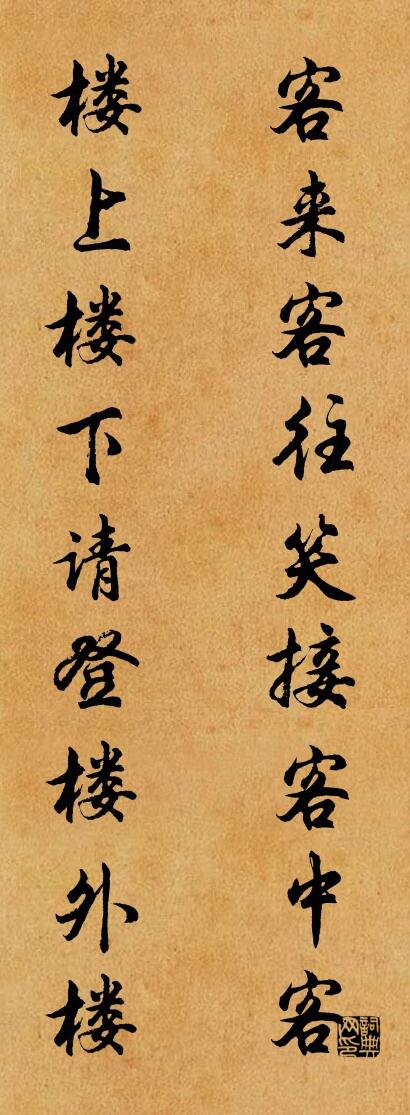 客来客往笑接客中客
楼上楼下请登楼外楼
词典网印